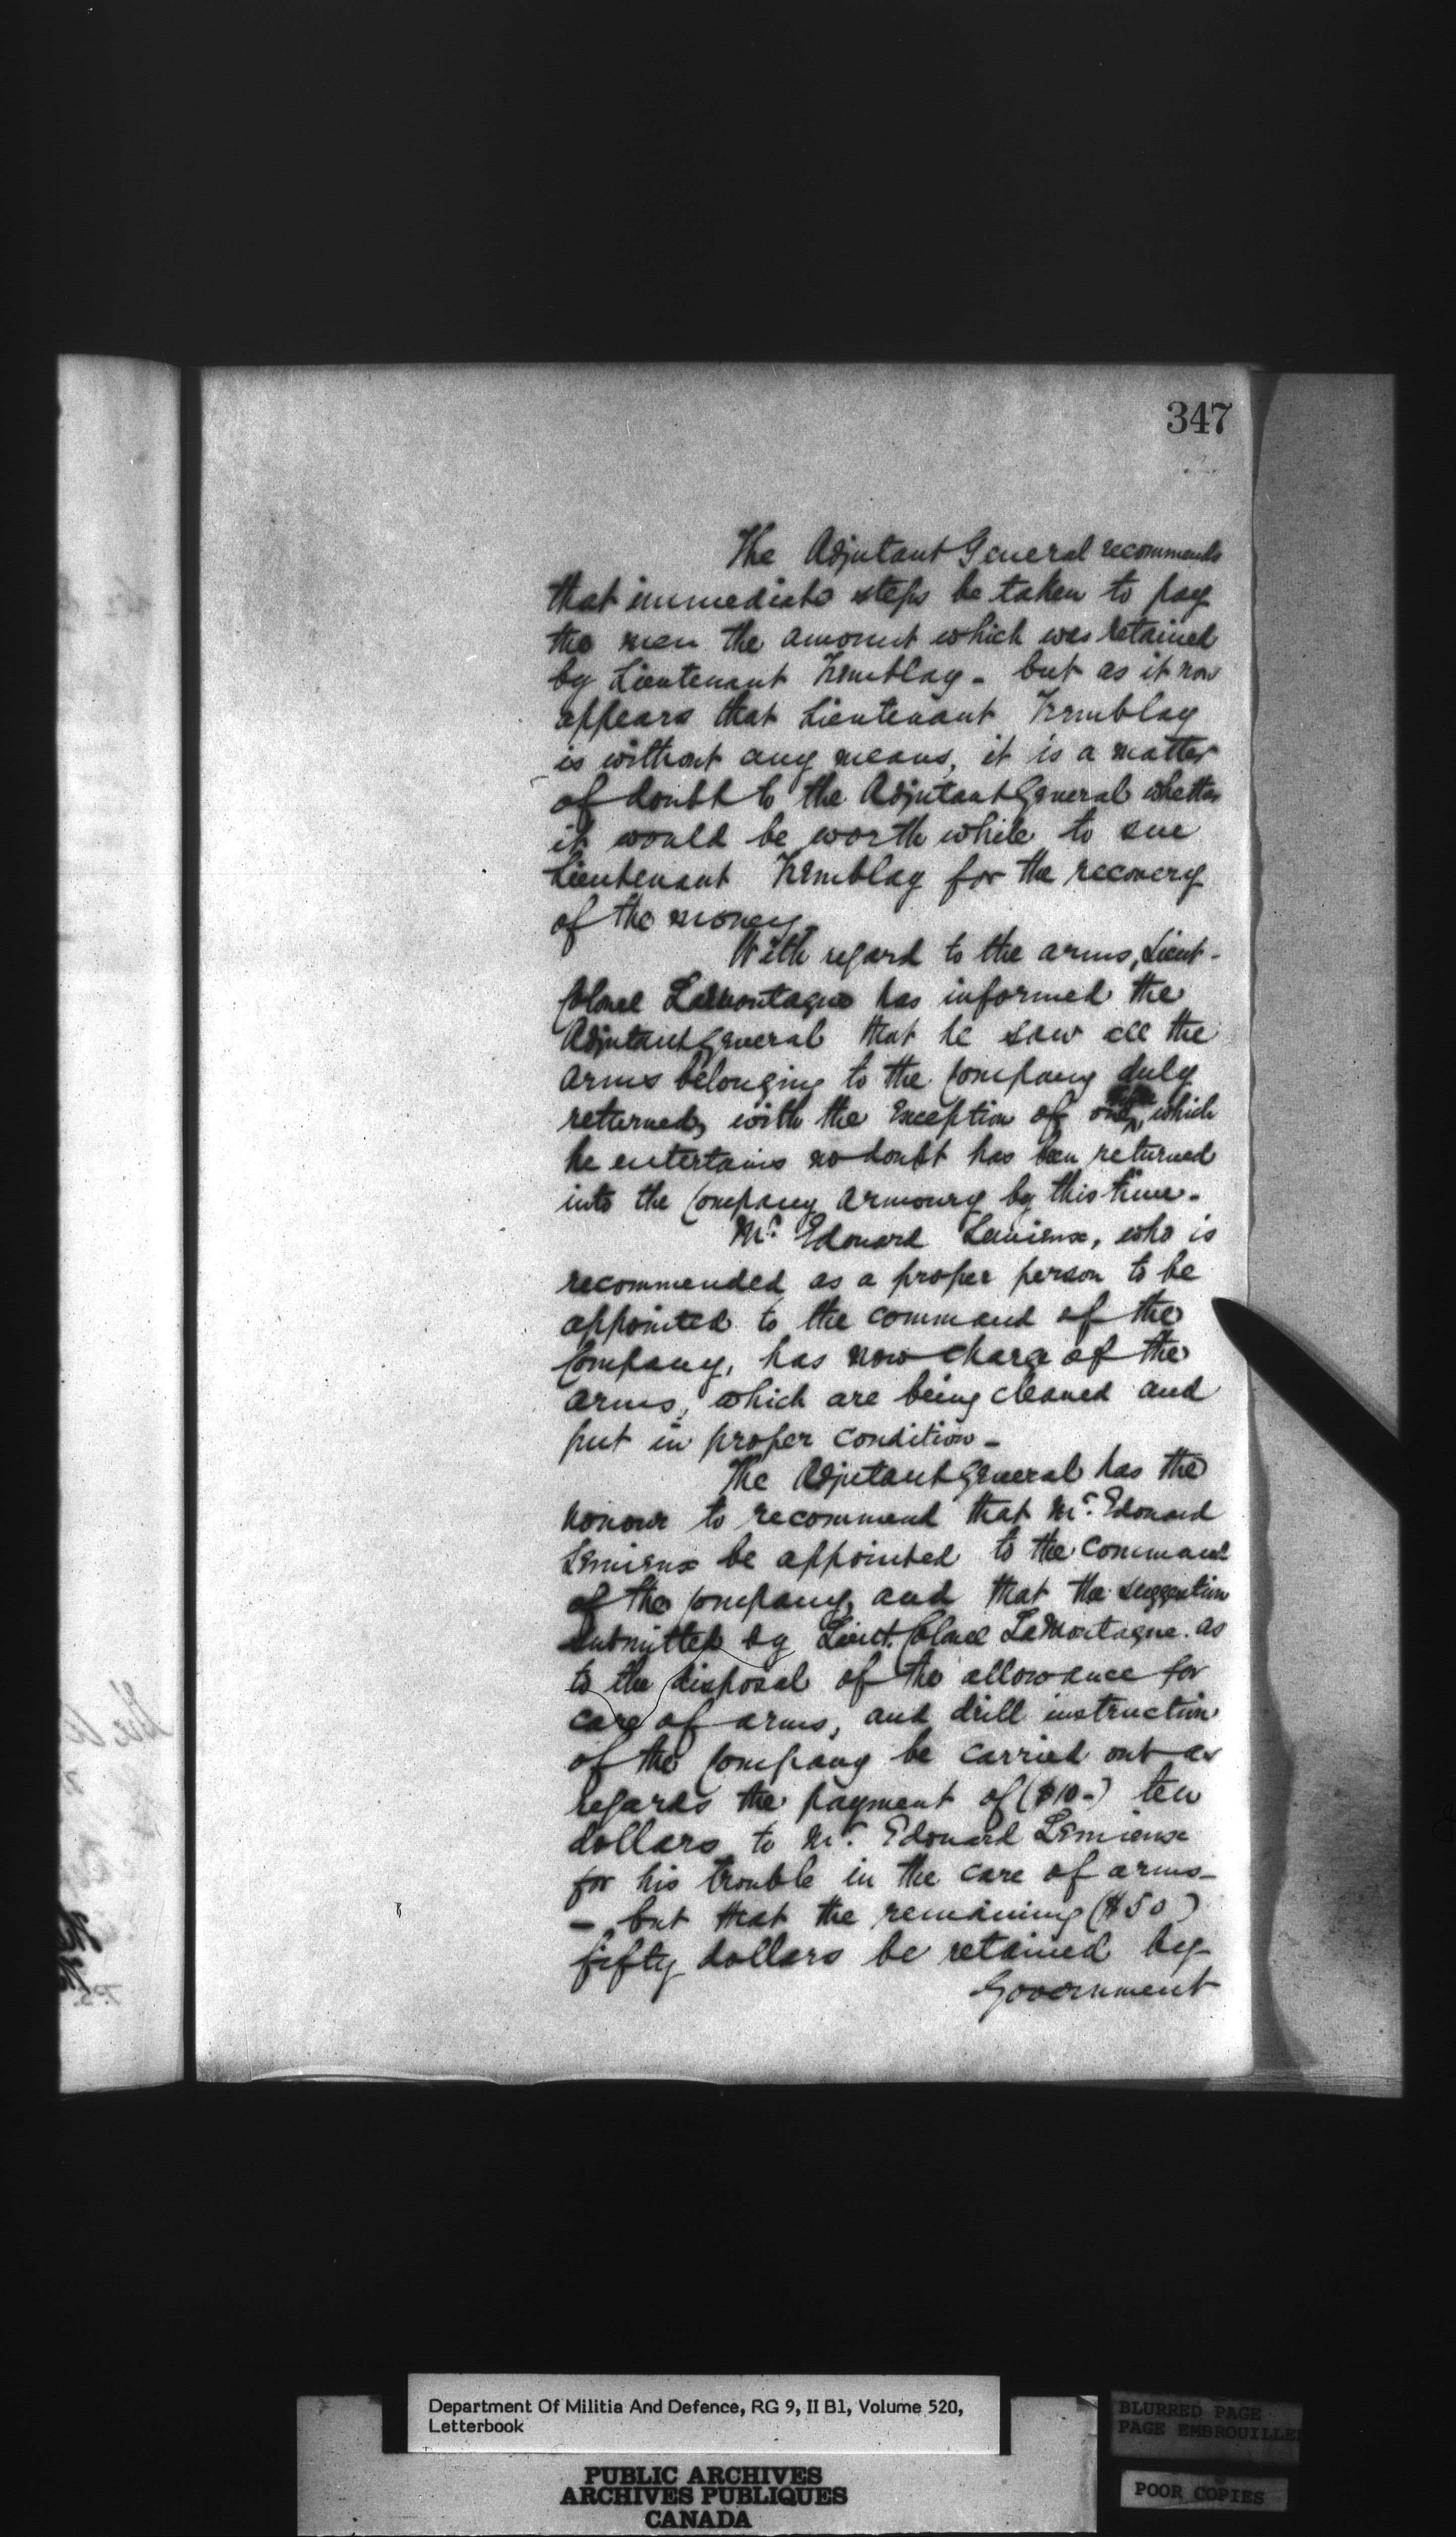 347
The Adjutant General recommends
that immediate steps be taken to pay
the men the amount which was retained
by Lieutenant Tremblay - but as it now
appears that Lieutenant Tremblay
is without any means, it is a matter
of doubt to the Adjutant General whether
it would be worth while to sue
Lieutenant Tremblay for the recovery
of the money.
With regard to the arms, Lieut-
Colonel LaMontagne has informed the
Adjutant General that he saw all the
arms belonging to the Company duly
returned, with the exception of one, which
he entertains no doubt has been returned
into the Company armoury by this time.
Mr. Edouard Lemieux, who is
recommended as a proper person to be
appointed to the command of the
Company, has now charge of the
arms, which are being cleaned and
put in proper condition -
The Adjutant General has the
honour to recommend that Mr. Edouard
Lemieux be appointed to the command
of the Company, and that the suggestion
submitted by Lieut. Colonel LaMontagne as
to the disposal of the allowance for
care of arms, and drill instruction
of the Company be carried out as
regards the payment of ($10-) ten
dollars to Mr. Edouard Lemieux
for his trouble in the care of arms -
- but that the remaining ($50)
fifty dollars be retained by
Government
Department Of Militia And Defence, RG 9, II B1, Volume 520,
Letterbook
PUBLIC ARCHIVES
ARCHIVES PUBLIQUES
CANADA
BLURRED PAGE
PAGE EMBROUILLE
POOR COPIES